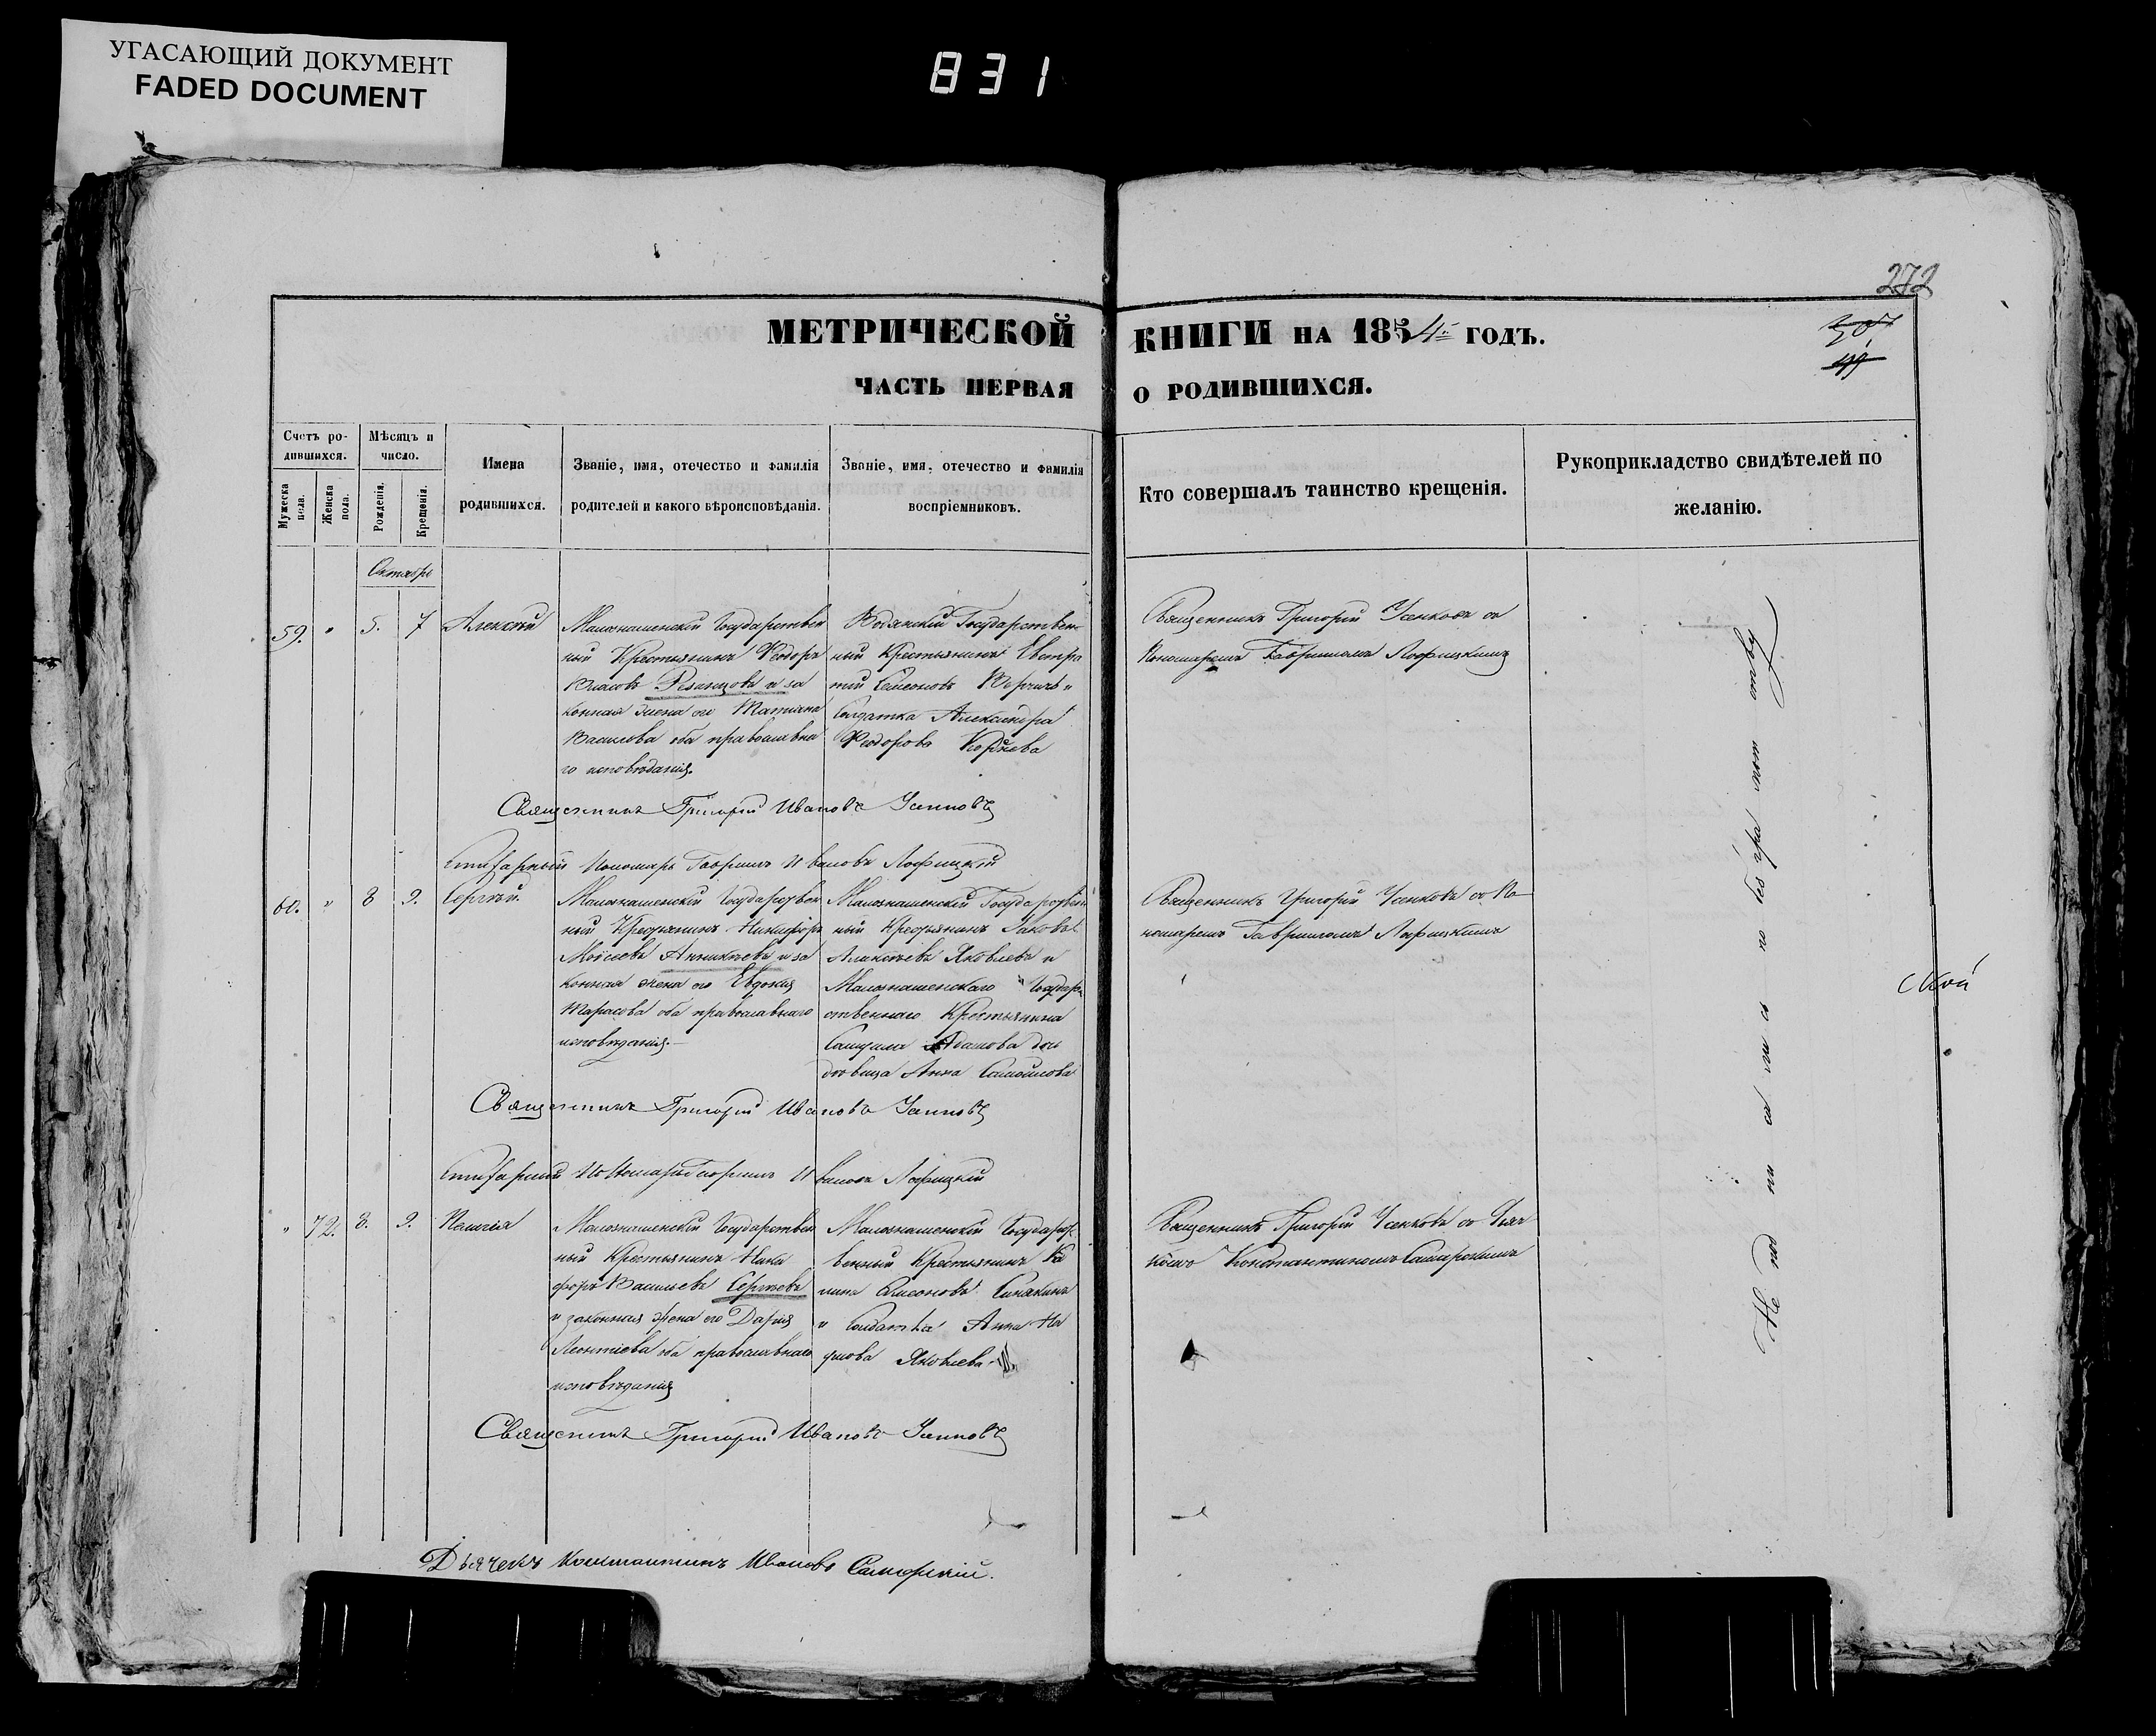 УГАСАЮЩИЙ ДОКУМЕНТ
FADED DOCUMENT
831
272
МЕТРИЧЕСКОЙ КНИГИ НА 1854 ГОДЪ.
ЧАСТЬ ПЕРВАЯ О РОДИВШИХСЯ.
Счетъ ро-
дившихся.
Мужеска
пола.
Женска
пола.
Мѣсяцъ и
число.
Рожденія.
Крещенія.
Имена
родившихся.
Званіе, имя, отечество и фамилія
родителей и какого вѣроисповѣданія.
Званіе, имя, отечество и фамилія
воспріемниковъ.
Кто совершалъ таинство крещенія.
Рукоприкладство свидѣтелей по
желанію.
Октябрь
59.
"
5.
7
Алексѣй
Малознаменскій Государствен
ный Крестьянинъ Феодоръ
Власовъ Резанцовъ и за
конная жена его Татіана
Василова оба православна
го исповѣданія.
Водянскій Государствен
ный Крестьянинъ Евстра
тій Симеоновъ и
Солдатка Александра
Феодорова
Священникъ Григорій Усенковъ съ
Пономаремъ Гавріиломъ Лофицкимъ
Священникъ Григорій Ивановъ
Пономарь Гавріилъ Ивановъ Лофицкій
60.
"
8
9.
Сергѣй.
Малознаменскій Государствен
ный Крестьянинъ Никифоръ
Моисеевъ Аникѣевъ и за
конная жена его Евдокія
Тарасова оба православнаго
исповѣданія.
Малознаменскій Государствен
ный Крестьянинъ Іаковъ
Алексѣевъ Яковлевъ и
Малознаменскаго Государ
ственнаго Крестьянина
Самуила Адамова
Анна Самойлова
Священникъ Григорій Усенковъ съ По
номаремъ Гавріиломъ Лофицкимъ
Священникъ Григорій Ивановъ
Пономарь Гавріилъ Ивановъ Лофицкій
"
72.
8.
9.
Пелагія
Малознаменскій Государствен
ный Крестьянинъ Ники
форъ Васильевъ Сергѣевъ
и законная жена его Дарія
Леонтіева оба православнаго
исповѣданія
Малознаменскій Государст
венный Крестьянинъ Ка
лина Симеоновъ Синякинъ
и Солдатка Анна На
умова Яковлева
Священникъ Григорій Усенковъ съ Дьяч
комъ Константиномъ Самарскимъ
Священникъ Григорій Ивановъ
Дьячекъ Константинъ Ивановъ Самарскій.
Не под пи са ли сь по без гра мот